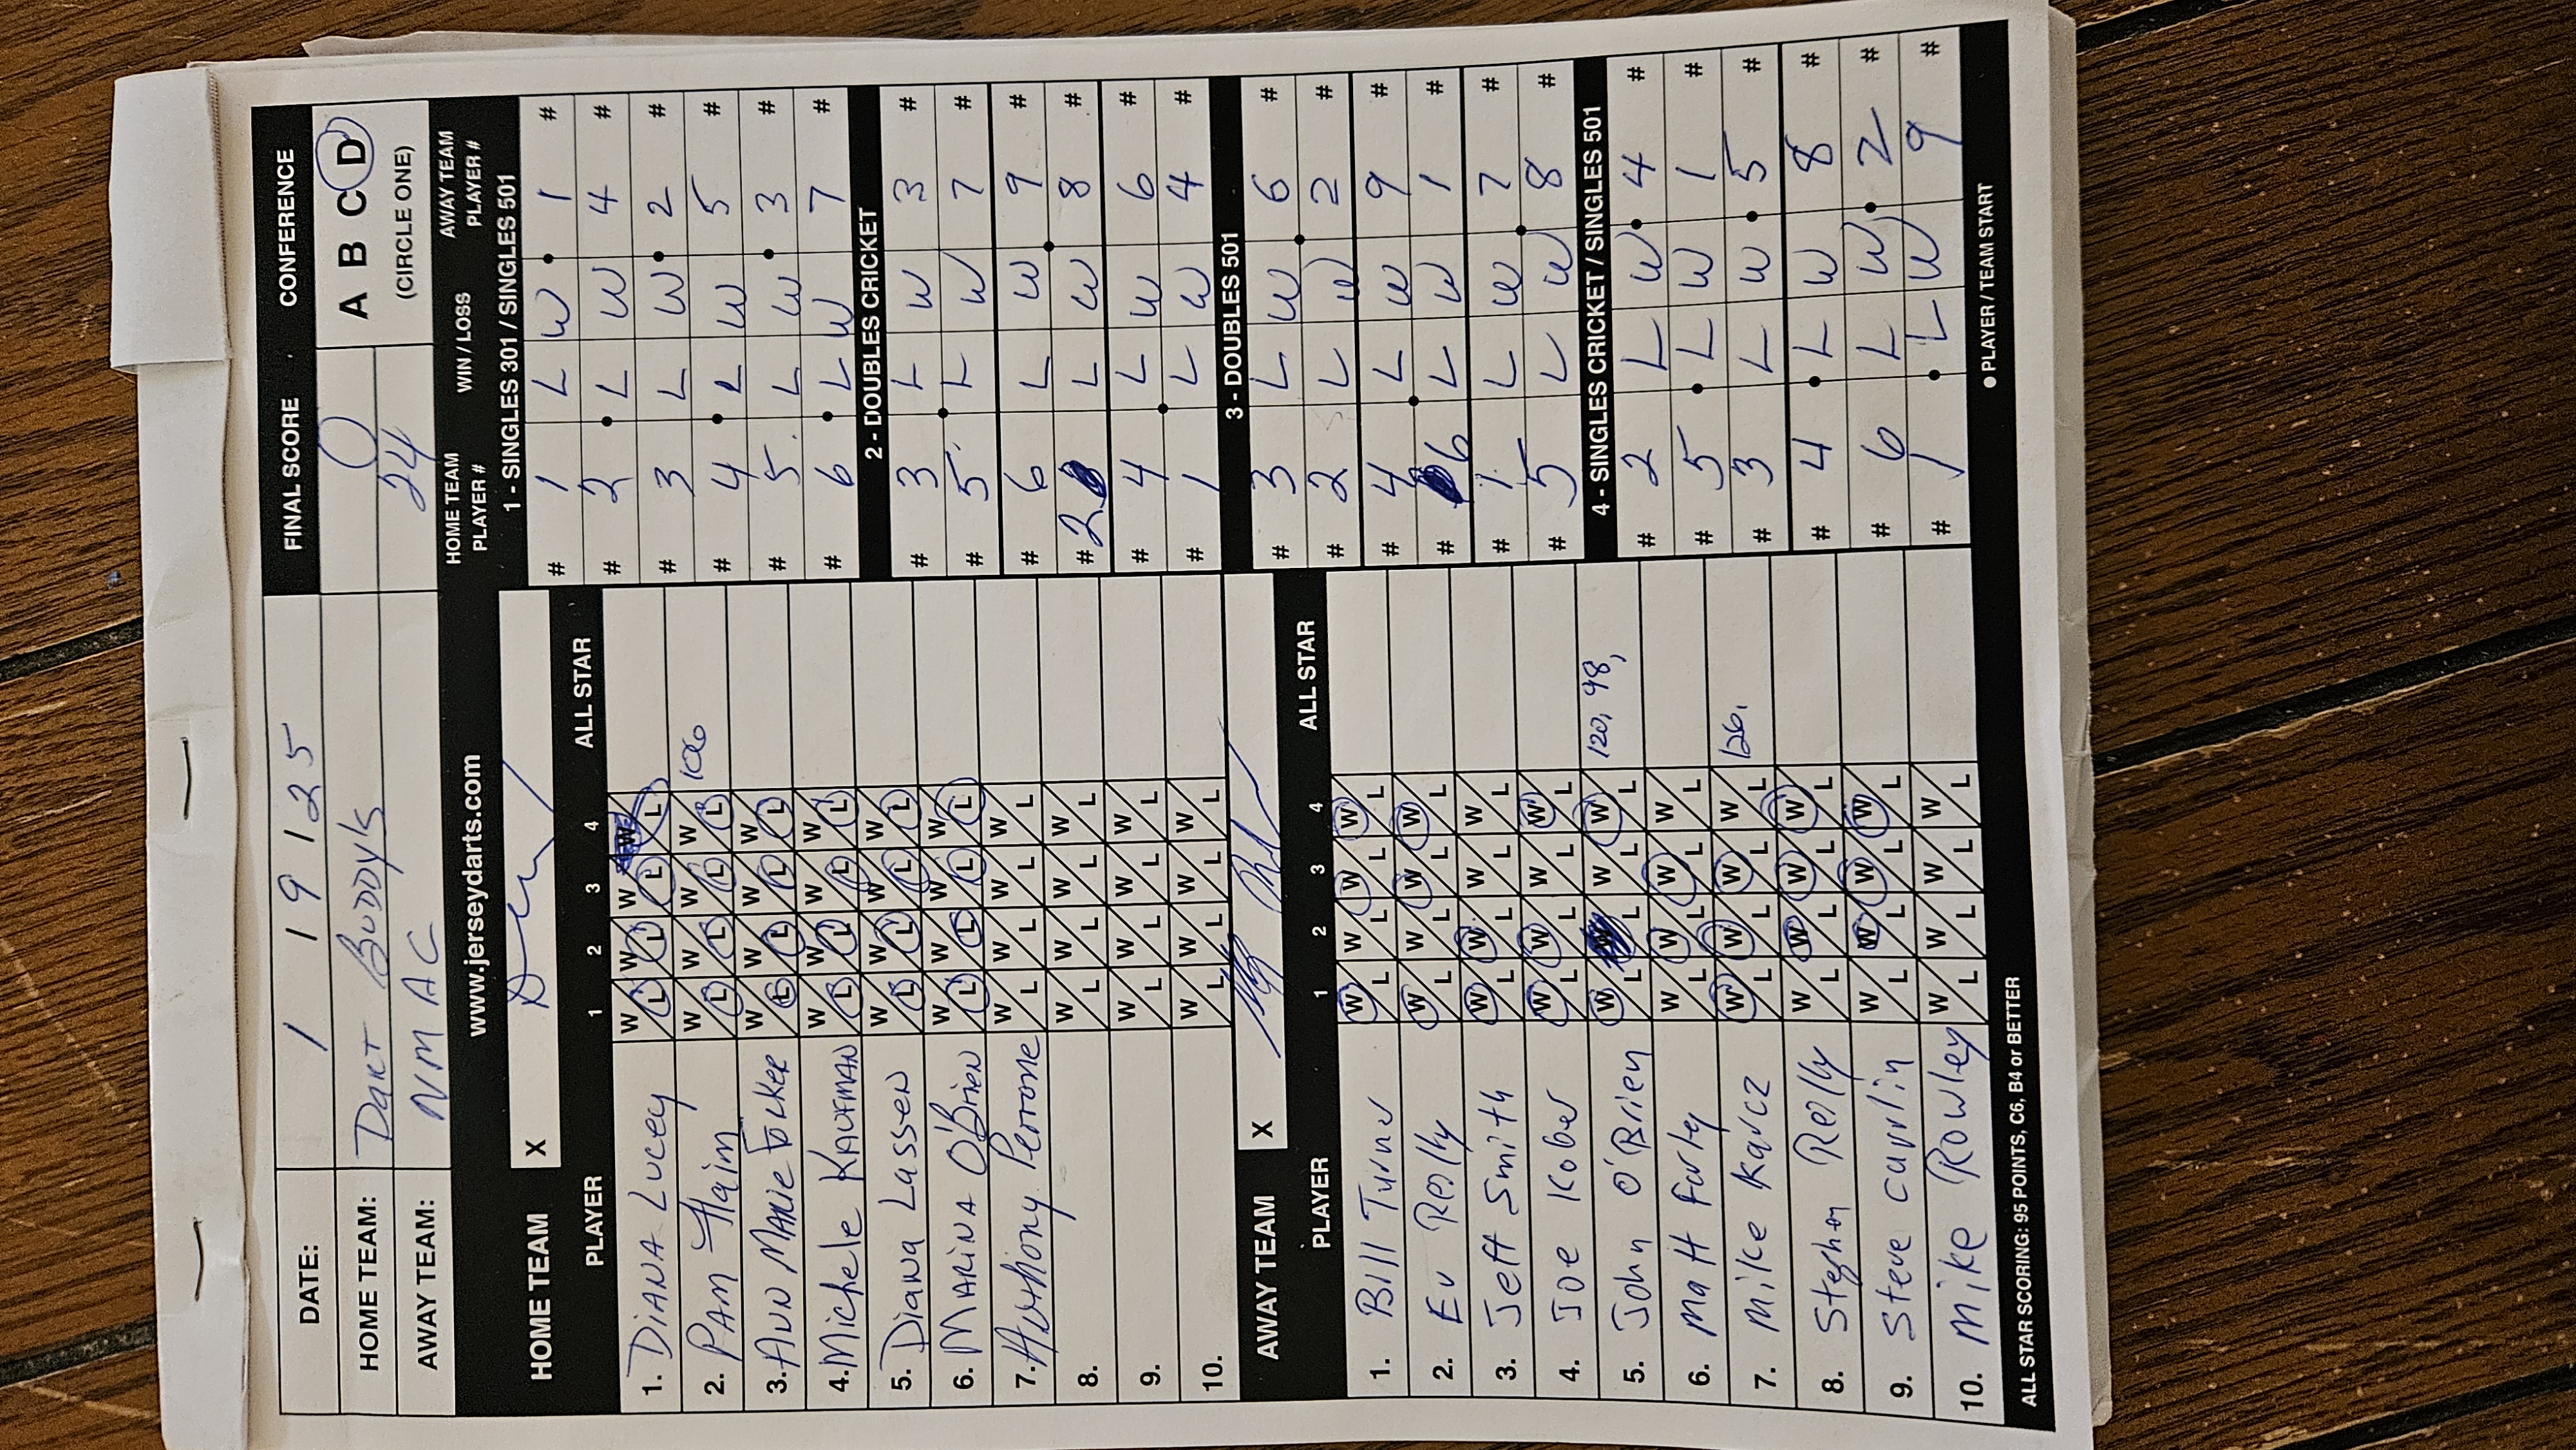 DATE: 1 19 125 FINAL SCORE CONFERENCE
HOME TEAM: DART BUDDY'S 0 A B C D
AWAY TEAM: NMAC 24 (CIRCLE ONE)
www.jerseydarts.com
HOME TEAM X
PLAYER 1 2 3 4 ALL STAR
1. DIANA LUCEY W L W L W L W L
2. PAM Haim W L W L W L W L 106
3. ANN MARIE FOLKER W L W L W L W L
4. Michele KAUFMAN W L W L W L W L
5. DIANA LASSEN W L W L W L W L
6. MARINA O'BRIEN W L W L W L W L
7. Anthony Perrone W L W L W L W L
8. W L W L W L W L
9. W L W L W L W L
10. W L W L W L W L
AWAY TEAM X
PLAYER 1 2 3 4 ALL STAR
1. Bill Turner W L W L W L W L
2. Ev Reilly W L W L W L W L
3. Jeff Smith W L W L W L W L
4. Joe Kober W L W L W L W L
5. John O'Brien W L L W L W L 120, 98,
6. Matt Furley W L W L W L W L
7. Mike Karcz W L W L W L W L 126,
8. Stephen Reilly W L W L W L W L
9. Steve Caurlin W L W L W L W L
10. Mike Rowley W L W L W L W L
ALL STAR SCORING: 95 POINTS, C6, B4 or BETTER
HOME TEAM PLAYER # WIN / LOSS AWAY TEAM PLAYER #
1 - SINGLES 301 / SINGLES 501
# 1 L W 1 #
# 2 L W 4 #
# 3 L W 2 #
# 4 L W 5 #
# 5 L W 3 #
# 6 L W 7 #
2 - DOUBLES CRICKET
# 3 L W 3 #
# 5 L W 7 #
# 6 L W 9 #
# 2 L W 8 #
# 4 L W 6 #
# 1 L W 4 #
3 - DOUBLES 501
# 3 L W 6 #
# 2 L W 2 #
# 4 L W 9 #
# 6 L W 1 #
# 1 L W 7 #
# 5 L W 8 #
4 - SINGLES CRICKET / SINGLES 501
# 2 L W 4 #
# 5 L W 1 #
# 3 L W 5 #
# 4 L W 8 #
# 6 L W 2 #
# 1 L W 9 #
● PLAYER / TEAM START